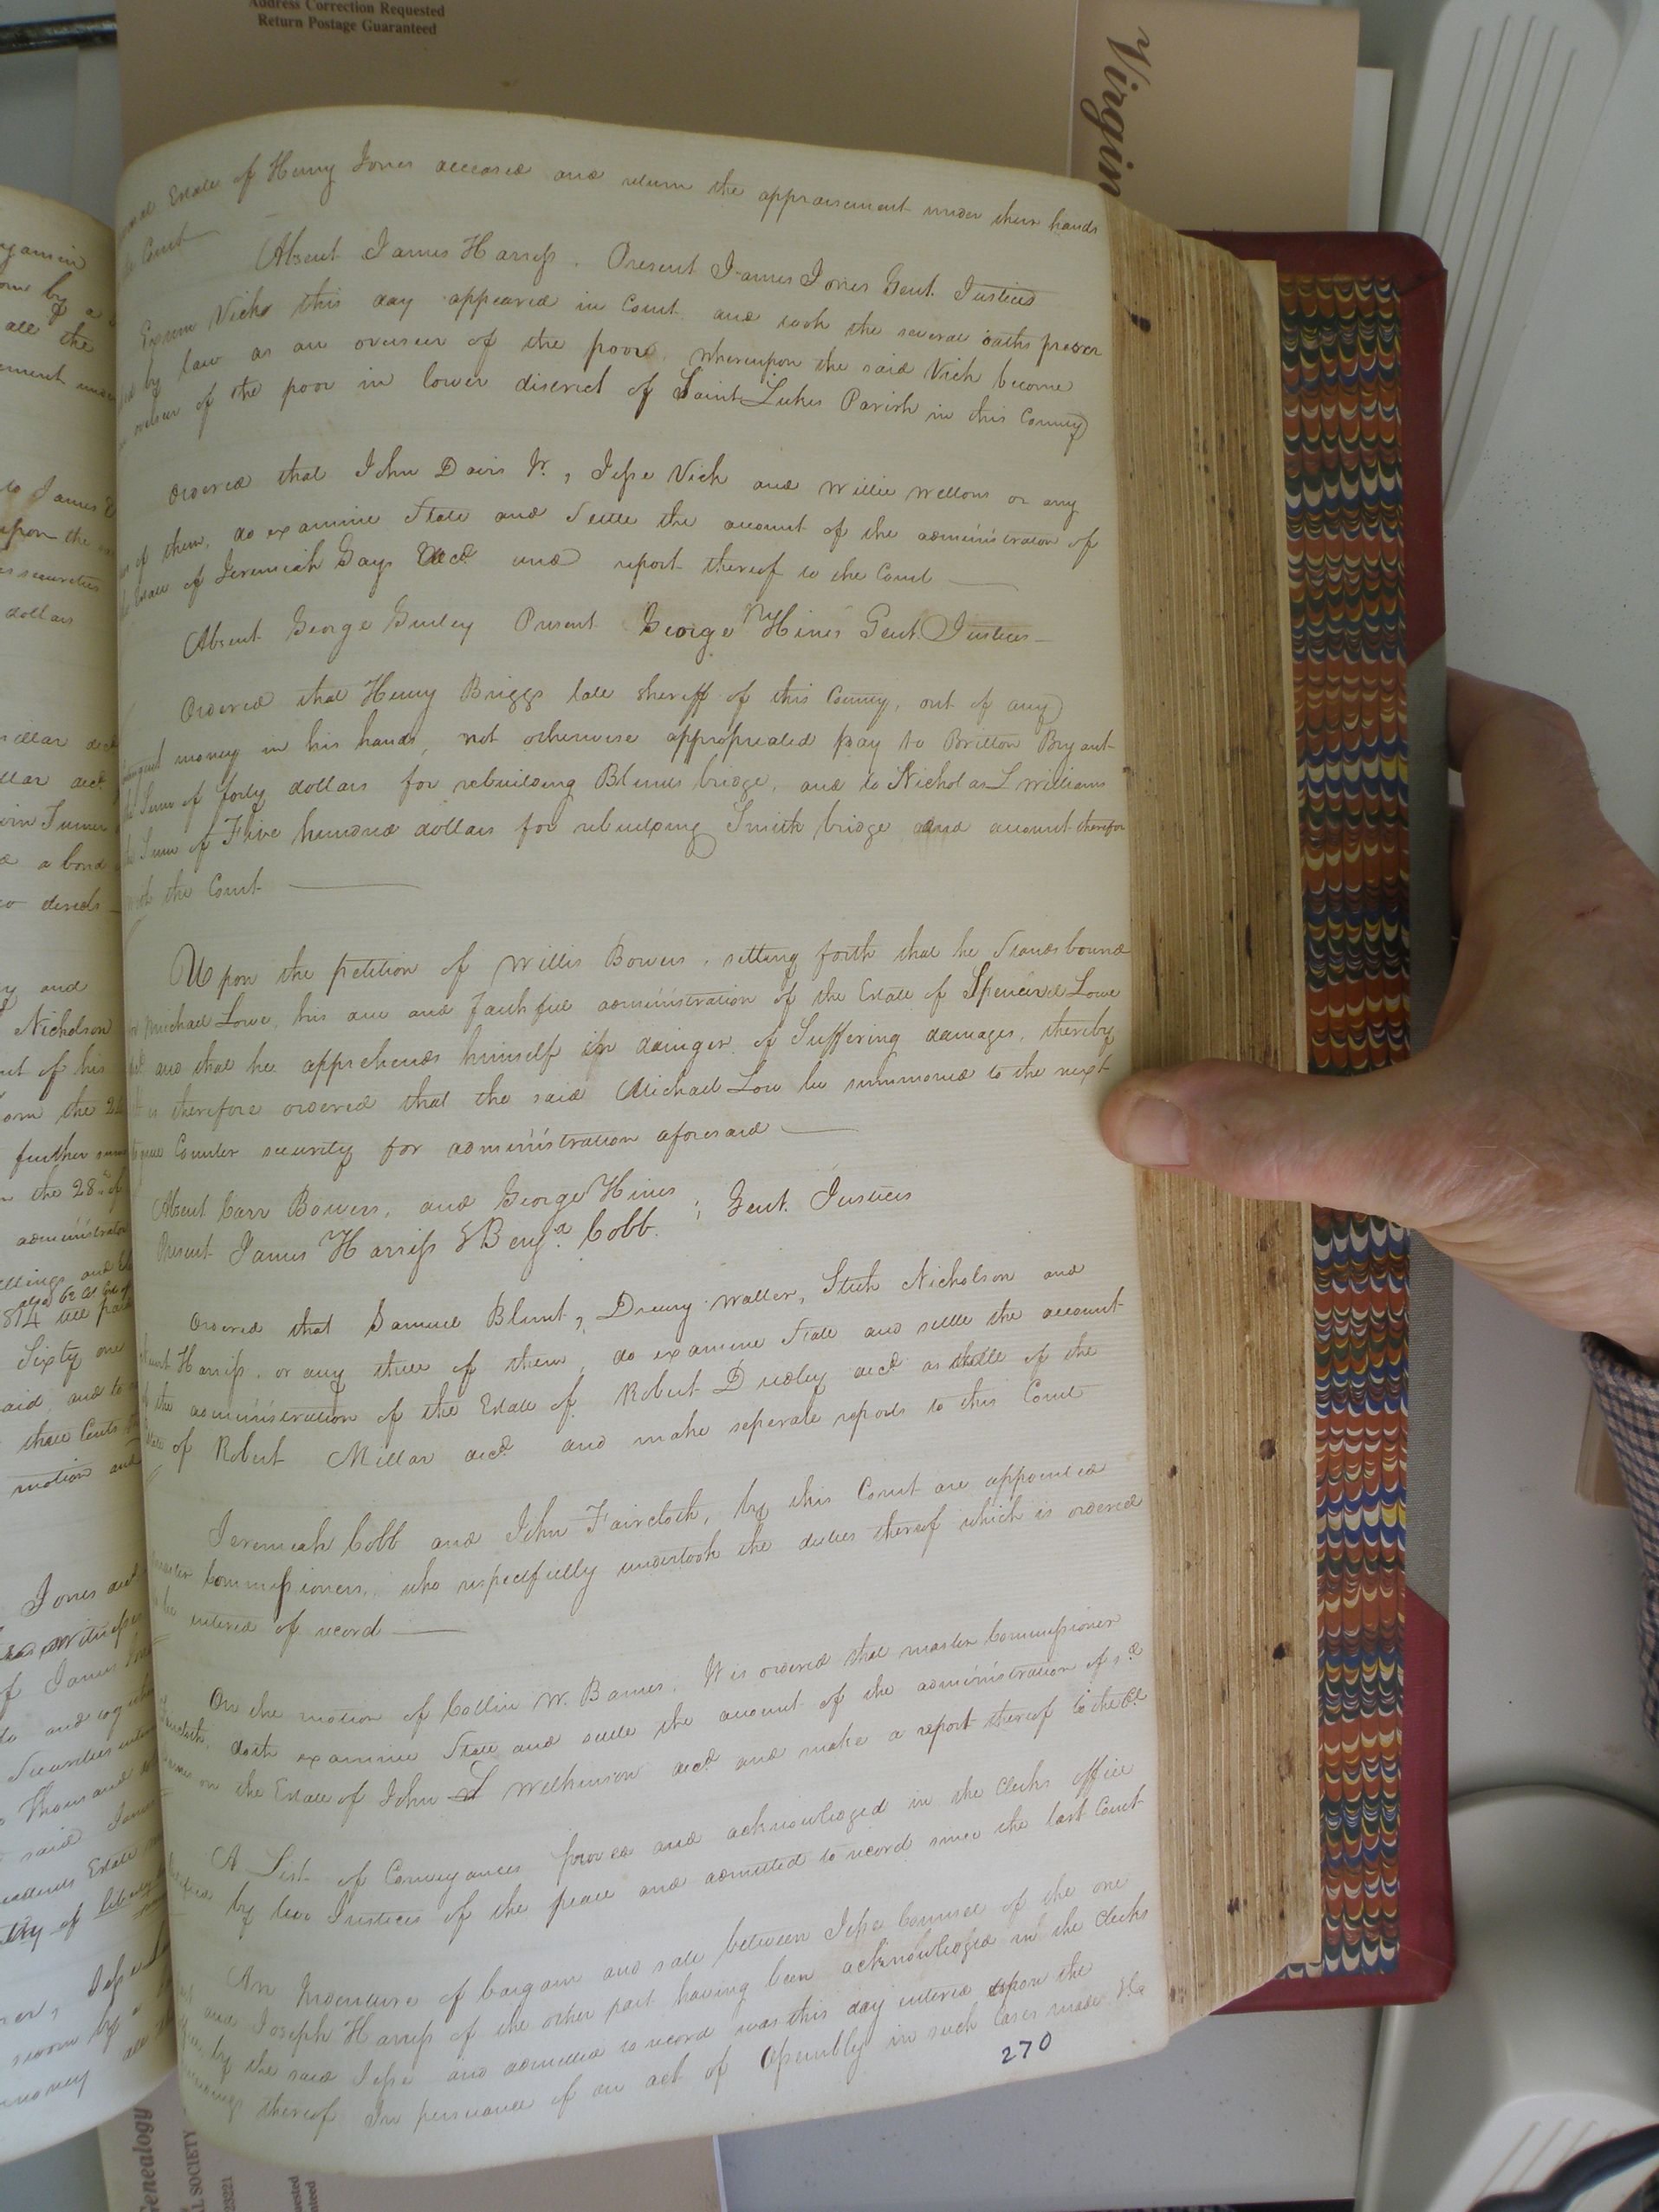 Address Correction Requested
Return Postage Guaranteed
Virgin
Estate of Henry Jones deceased and return the appraisement under their hands
to Court
Absent James Harriss. Present James Jones Gent. Justices
Exum Vick this day appeared in Court and took the several oaths prescri
by law as an overseer of the poor, whereupon the said Vick become
overseer of the poor in lower district of Saint Lukes Parish in this County
Ordered that John Davis Jr., Jesse Vick and Willie Wellons or any
of them, do examine State and Settle the account of the administration of
the Estate of Jeremiah Gays Decd. and report thereof to the Court
Absent George Gurley Present George Hines Gent. Justices
Ordered that Henry Briggs late sheriff of this County, out of any
money in his hands, not otherwise appropriated pay to Britton Bryant
the Sum of forty dollars for rebuilding Blunts bridge, and to Nicholas L Williams
the Sum of Five hundred dollars for rebuilding Smith bridge and account therefor
with the Court
Upon the petition of Willis Bowers, setting forth that he Stands bound
for Michael Lowe, his due and faithful administration of the Estate of Spencer Lowe
decd. and that he apprehends himself in dainger of Suffering damages, thereby
it is therefore ordered that the said Michael Low be summoned to the next
to give Counter security for administration aforesaid
Absent Carr Bowers, and George Hines
Present James Harriss & Benja. Cobb ; Gent. Justices
Ordered that Samuel Blunt, Drewry Waller, Stith Nicholson and
Harriss, or any three of them, do examine State and settle the account
of the administration of the Estate of Robert Dudley decd. as well of the
Estate of Robert Millar decd. and make seperate reports to this Court
Jeremiah Cobb and John Faircloth, by this Court are appointed
master Commissioners, who respectfully undertook the duties thereof which is ordered
to be entered of record
On the motion of Collin W. Barnes, It is ordered that master Commissioner
Faircloth, doth examine State and settle the account of the administration of sd.
Barnes on the Estate of John Wilkinson decd. and make a report thereof to the Ct.
A List of Conveyances proved and acknowledged in the Clerks office
by two Justices of the peace and admitted to record since the last Court
An Indenture of bargain and sale between Jesse Councel of the one
part and Joseph Harriss of the other part having been acknowledged in the Clerks
office by the said Jesse and admitted to record was this day entered upon the
thereof In persuance of an act of Assembly in such Cases made &c
270
to James
upon the
securities
dollars
a bond
and
Nicholson
of his
further
the 28th of
Sixty one
and to
three Cents
motion and
Jones decd.
of James
Thousand
said
Estate
Genealogy
L SOCIETY
23221